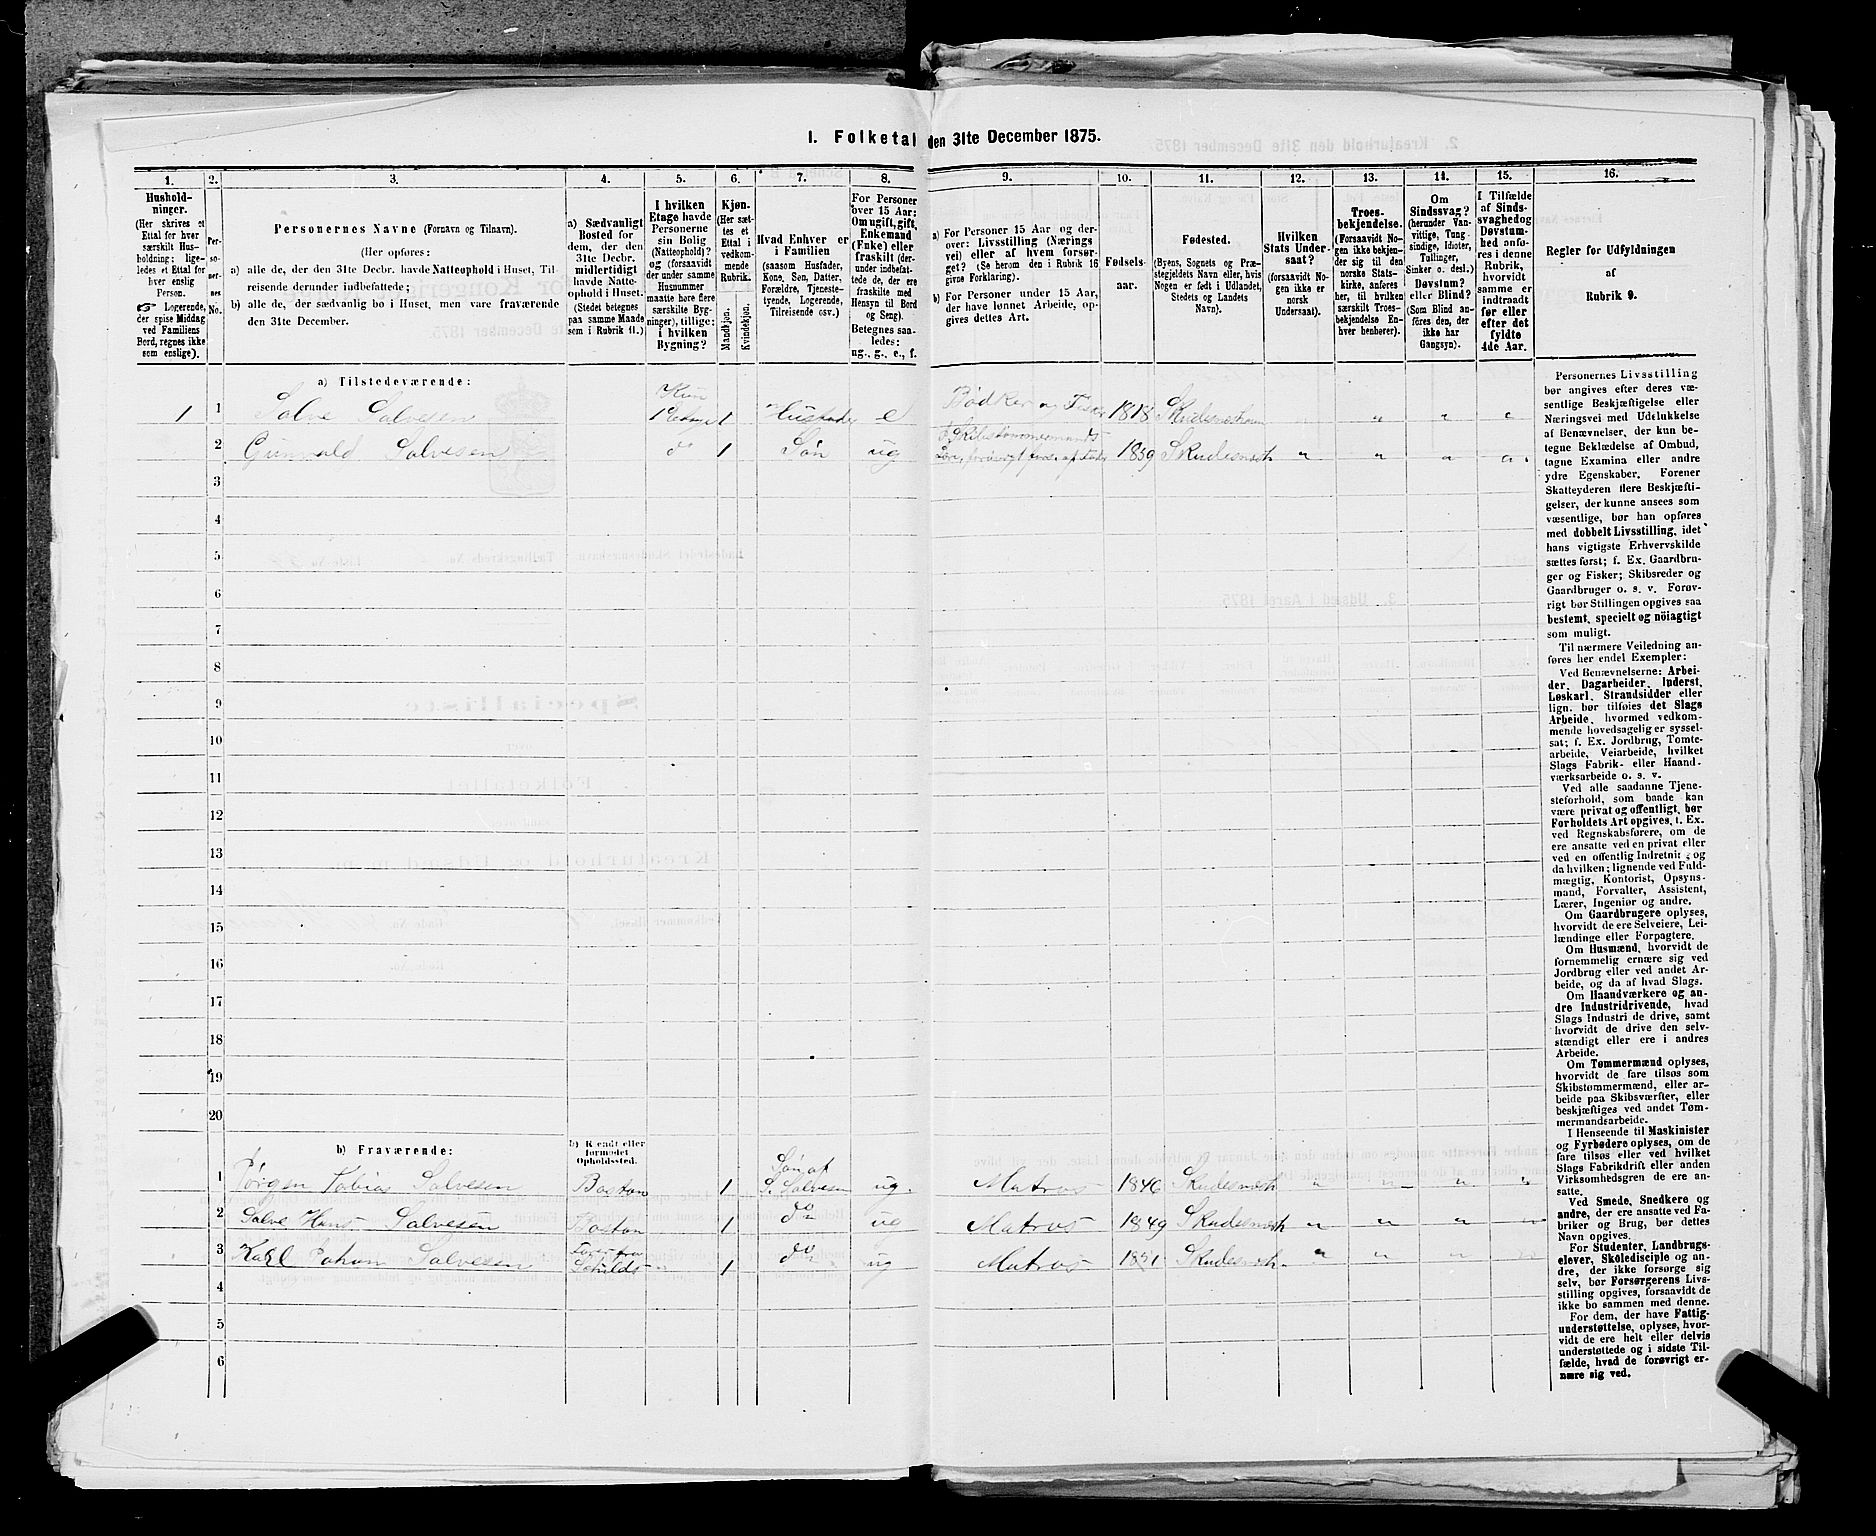 I. Folketal den 31te December 1875.
1. 2. 3. 4. 5. 6. 7. 8. 9. 10. 11. 12. 13. 14. 15. 16.
Hushold-
ninger.
(Her skrives et
Ettal for hver
særskilt Hus-
holdning; lige-
ledes et Ettal for
hver enslig
Person.
☞ Logerende,
der spise Middag
ved Familiens
Bord, regnes ikke
som enslige).
Per-
so-
ner-
nes
No.
Personernes Navne (Fornavn og Tilnavn).
(Her opføres:
a) alle de, der den 31te Decbr. havde Natteophold i Huset, Til-
reisende derunder indbefattede;
b) alle de, der sædvanlig bo i Huset, men vare fraværende
den 31te December.
a) Sædvanligt
Bosted for
dem, der den
31te Decbr.
midlertidigt
havde Natte-
ophold i Huset.
(Stedet betegnes
paa samme Maade
som i Rubrik 11.)
I hvilken
Etage havde
Personerne
sin Bolig
(Natteophold)?
og (forsaavidt
der under samme
Husnummer
maatte høre flere
særskilte Byg-
ninger), tillige:
i hvilken
Bygning?
Kjøn.
(Her sæt-
tes et
Ettal i
vedkom-
mende
Rubrik.
Mandkjøn.
Kvindekjøn.
Hvad Enhver er
i Familien
(saasom Husfader,
Kone, Søn, Datter,
Forældre, Tjeneste-
tyende, Logerende,
Tilreisende osv.)
For Personer
over 15 Aar:
Om ugift, gift,
Enkemand
(Enke) eller
fraskilt (der-
under indbefat-
tede de, der ere
fraskilte med
Hensyn til Bord
og Seng).
Betegnes saa-
ledes:
ug., g., e., f.
a) For Personer 15 Aar og der-
over: Livsstilling (Nærings-
vei) eller af hvem forsør-
get? (Se herom den i Rubrik 16
givne Forklaring).
b) For Personer under 15 Aar,
der have lønnet Arbeide, op-
gives dettes Art.
Fødsels-
aar.
Fødested.
(Byens, Sognets og Præ-
stegjeldets Navn eller, hvis
Nogen er født i Udlandet,
Stedets og Landets
Navn).
Hvilken
Stats Under-
saat?
(forsaavidt No-
gen ikke er
norsk
Undersaat).
Troes-
bekjendelse.
(Forsaavidt No-
gen ikke bekjen-
der sig til den
norske Stats-
kirke, anføres
her, til hvilken
særskilt Troes-
bekjendelse En-
hver henhører).
Om
Sindssvag?
(herunder Van-
vittige, Tung-
sindige, Idioter,
Tallinger,
Sinker o. desl.)
Døvstum?
eller Blind?
(Som Blind an-
føres den, der
ikke har
Gangsyn).
I Tilfælde
af Sinds-
svaghed og
Døvstum-
hed anfø-
res i denne
Rubrik,
hvorvidt
samme er
indtraadt
før eller
efter det
fyldte
4de Aar.
Regler for Udfyldningen
af
Rubrik 9.
a) Tilstedeværende:
1 1 Salve Salvesen Kun 1 Etage 1 Husfader e Bødker og 1818 Skudesneshavn " " "
2 Gunvald Salvesen do 1 Søn ug Skibstømmermands 1859 Skudesnesh " " " "
3
4
5
6
7
8
9
10
11
12
13
14
15
16
17
18
19
20
b) Fraværende:
b) Kjendt eller
formodet
Opholdssted.
1 Jørgen Tobias Salvesen Boston 1 Søn af S. Salvesen ug. Matros 1846 Skudesnesh " " " "
2 Salve Hans Salvesen Boston 1 do ug Matros 1849 Skudesnesh " " "
3 Karl Johan Salvesen 1 do ug Matros 1851 Skudesnesh. " " "
4
5
6
Personernes Livsstilling
bør angives efter deres væ-
sentlige Beskjæftigelse eller
Næringsvei med Udelukkelse
af Benævnelser, der kun be-
tegne Beklædelse af Ombud,
tagne Examina eller andre
ydre Egenskaber. Forener
Skatteyderen flere Beskjæfti-
gelser, der kunne ansees som
væsentlige, bør han opføres
med dobbelt Livsstilling, idet
hans vigtigste Erhvervskilde
sættes først; f. Ex. Gaardbru-
ger og Fisker; Skibsreder og
Gaardbruger o. s. v. Forøv-
rigt bør Stillingen opgives saa
bestemt, specielt og nöiagtigt
som muligt.
Til nærmere Veiledning an-
føres her endel Exempler:
Ved Benævnelserne: Arbei-
der, Dagarbeider, Inderst,
Løskarl, Strandsidder eller
lign. bør tilføies det Slags
Arbeide, hvormed vedkom-
mende hovedsagelig er syssel-
sat; f. Ex. Jordbrug, Tomte-
arbeide, Veiarbeide, hvilket
Slags Fabrik- eller Haand-
værksarbeide o. s. v.
Ved alle saadanne Tjene-
steforhold, som baade kan
være privat og offentligt, bør
Forholdets Art opgives, f. Ex.
ved Regnskabsførere, om de
ere ansatte ved en privat eller
ved en offentlig Indretning og
da hvilken; lignende ved Fuld-
mægtig, Kontorist, Opsyns-
mand, Forvalter, Assistent,
Lærer, Ingeniør og andre.
Om Gaardbrugere oplyses,
hvorvidt de ere Selveiere, Lei-
lændinge eller Forpagtere.
Om Husmænd, hvorvidt de
fornemmelig ernære sig ved
Jordbrug eller ved andet Ar-
beide, og da af hvad Slags.
Om Haandværkere og an-
dre Industridrivende, hvad
Slags Industri de drive, samt
hvorvidt de drive den selv-
stændigt eller ere i andres
Arbeide.
Om Tømmermænd oplyses,
hvorvidt de fare tilsøs som
Skibstømmermænd, eller ar-
beide paa Skibsværfter, eller
beskjæftiges ved andet Tøm-
mermandsarbeide.
I Henseende til Maskinister
og Fyrbødere oplyses, om de
fare tilsøs eller ved hvilket
Slags Fabrikdrift eller anden
Virksomhedsgren de ere an-
satte.
Ved Smede, Snedkere og
andre, der ere ansatte ved Fa-
briker og Brug, bør dettes
Navn opgives.
For Studenter, Landbrugs-
elever, Skoledisciple og an-
dre, der ikke forsørge sig
selv, bør Forsørgerens Livs-
stilling opgives, forsaavidt de
ikke bo sammen med denne.
For dem, der have Fattig-
understøttelse, oplyses, hvor-
vidt de ere helt eller delvis
understøttede og i sidste Til-
fælde, hvad de forøvrigt er-
nære sig ved.